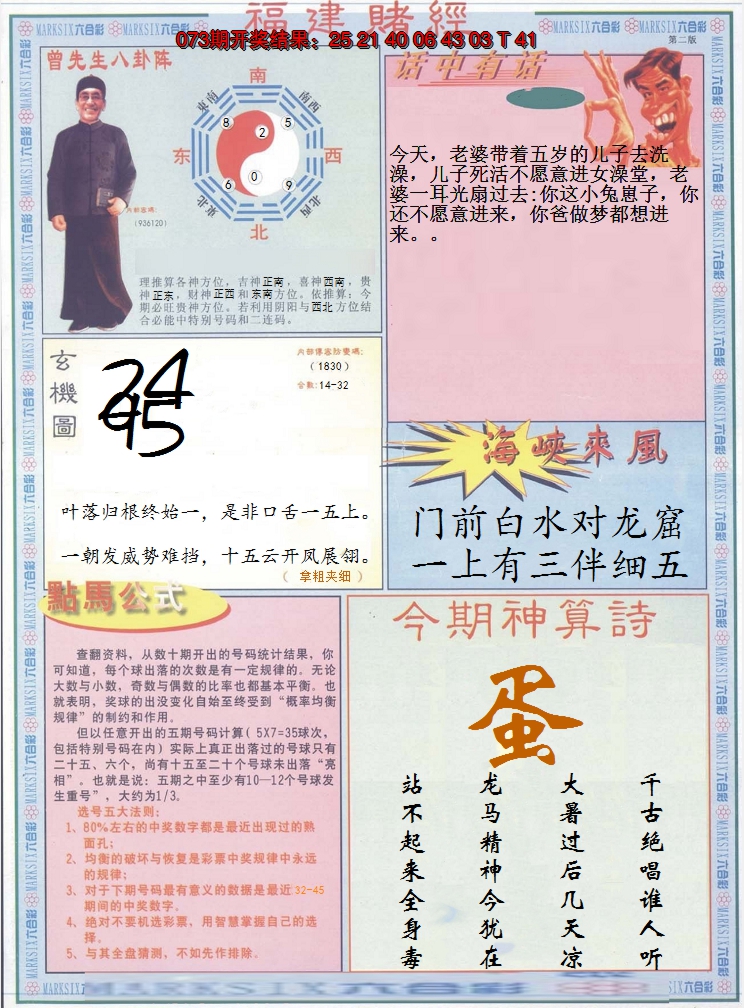 福建賭經
MARKSIX六合彩
073期开奖结果：25 21 40 06 43 03 T 41
第二版
曾先生八卦阵
南
东南
南西
8
5
2
东
西
6
0
9
東北
北西
北
内部密碼:
(936120)
理推算各神方位，吉神正南，喜神西南，贵
神正东，财神正西和东南方位。依推算：今
期必旺贵神方位。若利用阴阳与西北方位结
合必能中特别号码和二连码。
话中有话
今天，老婆带着五岁的儿子去洗
澡，儿子死活不愿意进女澡堂，老
婆一耳光扇过去:你这小兔崽子，你
还不愿意进来，你爸做梦都想进
来。。
玄機圖
24
95
(1830)
合数:14-32
叶落归根终始一，是非口舌一五上。
一朝发威势难挡，十五云开凤展翎。
（ 拿粗夹细 ）
海峽來風
门前白水对龙窟
一上有三伴细五
點馬公式
查翻资料，从数十期开出的号码统计结果，你
可知道，每个球出落的次数是有一定规律的。无论
大数与小数，奇数与偶数的比率也都基本平衡。也
就表明，奖球的出没变化自始至终受到“概率均衡
规律”的制约和作用。
但以任意开出的五期号码计算( 5X7=35球次，
包括特别号码在内) 实际上真正出落过的号球只有
二十五、六个，尚有十五至二十个号球未出落“亮
相”。也就是说：五期之中至少有10—12个号球发
生重号”，大约为1/3。
选号五大法则:
1、80%左右的中奖数字都是最近出现过的熟
面孔；
2、均衡的破坏与恢复是彩票中奖规律中永远
的规律；
3、对于下期号码最有意义的数据是最近32-45
期间的中奖数字。
4、绝对不要机选彩票，用智慧掌握自己的选
择。
5、与其全盘猜测，不如先作排除。
今期神算詩
蛋
千古绝唱谁人听
大暑过后几天凉
龙马精神今犹在
站不起来全身毒